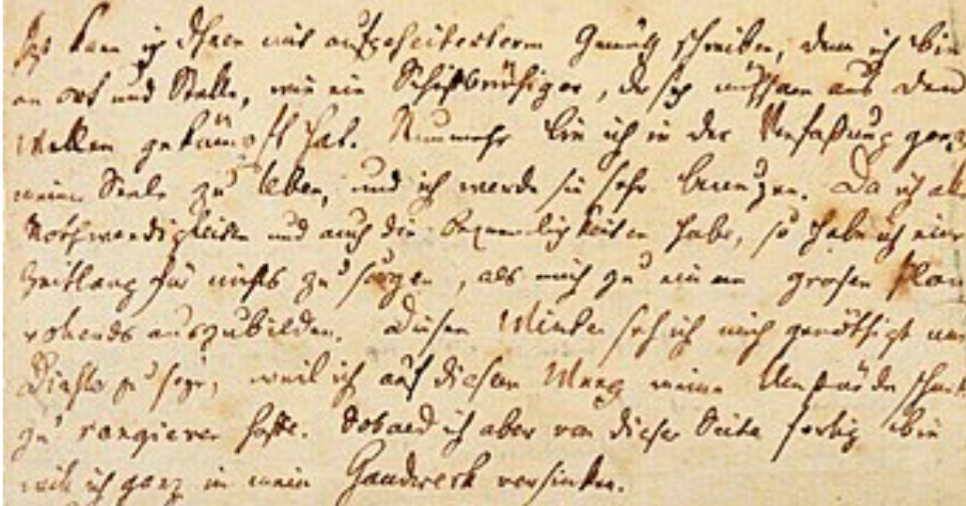 Jezt kann ich Ihnen mit aufgeheiterterm Gemüth schreiben, denn ich bin
an ort und Stelle, wie ein Schifbrüchiger, der sich mühsam aus den
Wellen gekämpft hat. Nunmehr bin ich in der Verfaßung ganz
meiner Seele zu leben, und ich werde sie sehr benuzen. Da ich alle
Nothwendigkeiten und auch die Bequemlichkeiten habe, so habe ich eine
Zeitlang für nichts zu sorgen, als mich zu einem grosen Plan
vollends auszubilden. Diesen Winter seh ich mich genöthigt nur
Dichter zu seyn, weil ich auf diesem Weeg meine Umstände schneller
zu rangieren hoffe. Sobald ich aber von dieser Seite fertig bin
will ich ganz in mein Handwerk versinken.